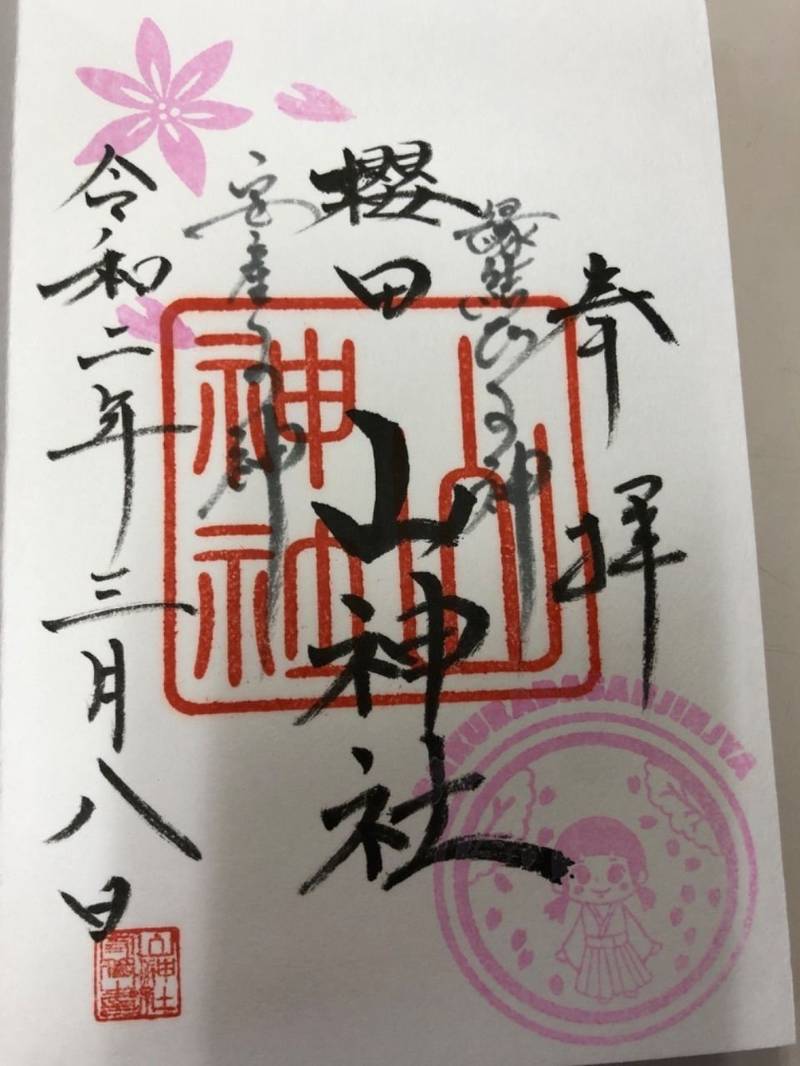 奉拝
縁結びの神
櫻田山神社
安産の神
令和二年三月八日
山神神社
SAKURADASANJINJYA